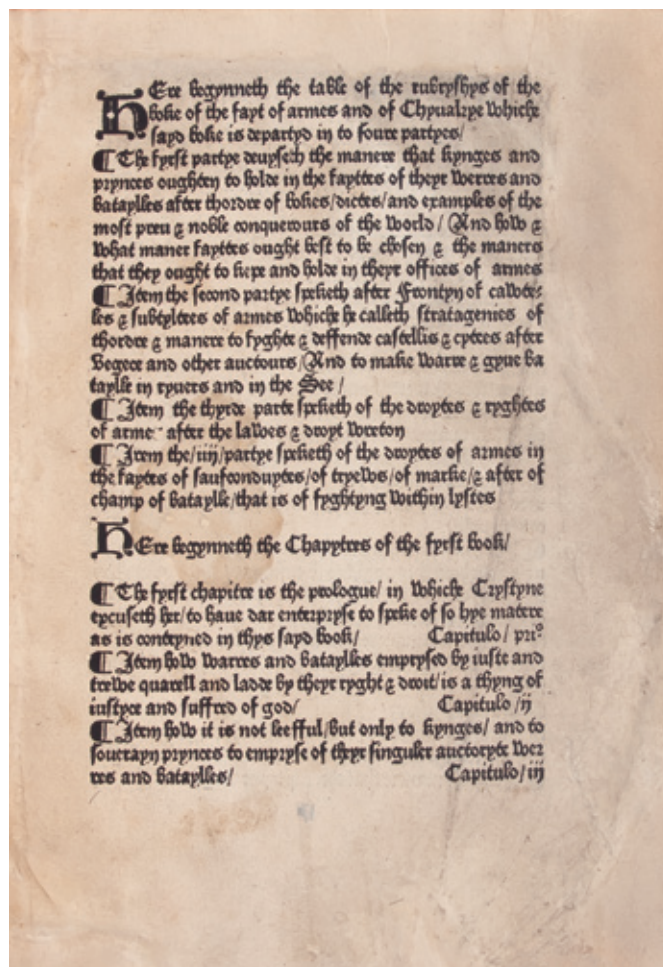 HEre begynneth the table of the rubryshys of the
boke of the fayt of armes and of Chyualrye whiche
sayd boke is departyd in to foure partyes/
¶ The fyrst partye deuyseth the manere that kynges and
prynces oughten to holde in the fayttes of theyr werres and
bataylles after thordre of bokes/dictes/and examples of the
most preu & noble conquerours of the world / And how &
what maner fayttes ought best to be chosen & the maners
that they ought to kepe and holde in theyr offices of armes
¶ Item the second partye speketh after Frontyn of cawte-
les & subtyltees of armes whiche he calleth stratagenies of
thordre & manere to fyghte & deffende castellis & cytees after
Vegece and other auctours/And to make warre & gyue ba
taylle in ryuers and in the See /
¶ Item the thyrde parte speketh of the droytes & ryghtes
of arme after the lawes & droyt wreton
¶ Item the/iiij/partye speketh of the droytes of armes in
the faytes of saufconduytes/of tryews/of marke/& after of
champ of bataylle/that is of fyghtyng within lystes
HEre begynneth the Chapytres of the fyrst book/
¶ The fyrst chapitre is the prologue/ in whiche Crystyne
excuseth her/to haue dar enterpryse to speke of so hye matere
as is conteyned in thys sayd book/ Capitulo/ pri°
¶ Item how warres and bataylles emprysed by iuste and
trewe quarell and ladde by theyr ryght & droit/is a thyng of
iustyce and suffred of god/ Capitulo /ij
¶ Item how it is not leefful/but only to kynges/ and to
souerayn prynces to empryse of theyr singuler auctoryte wer
res and bataylles/ Capitulo/iij